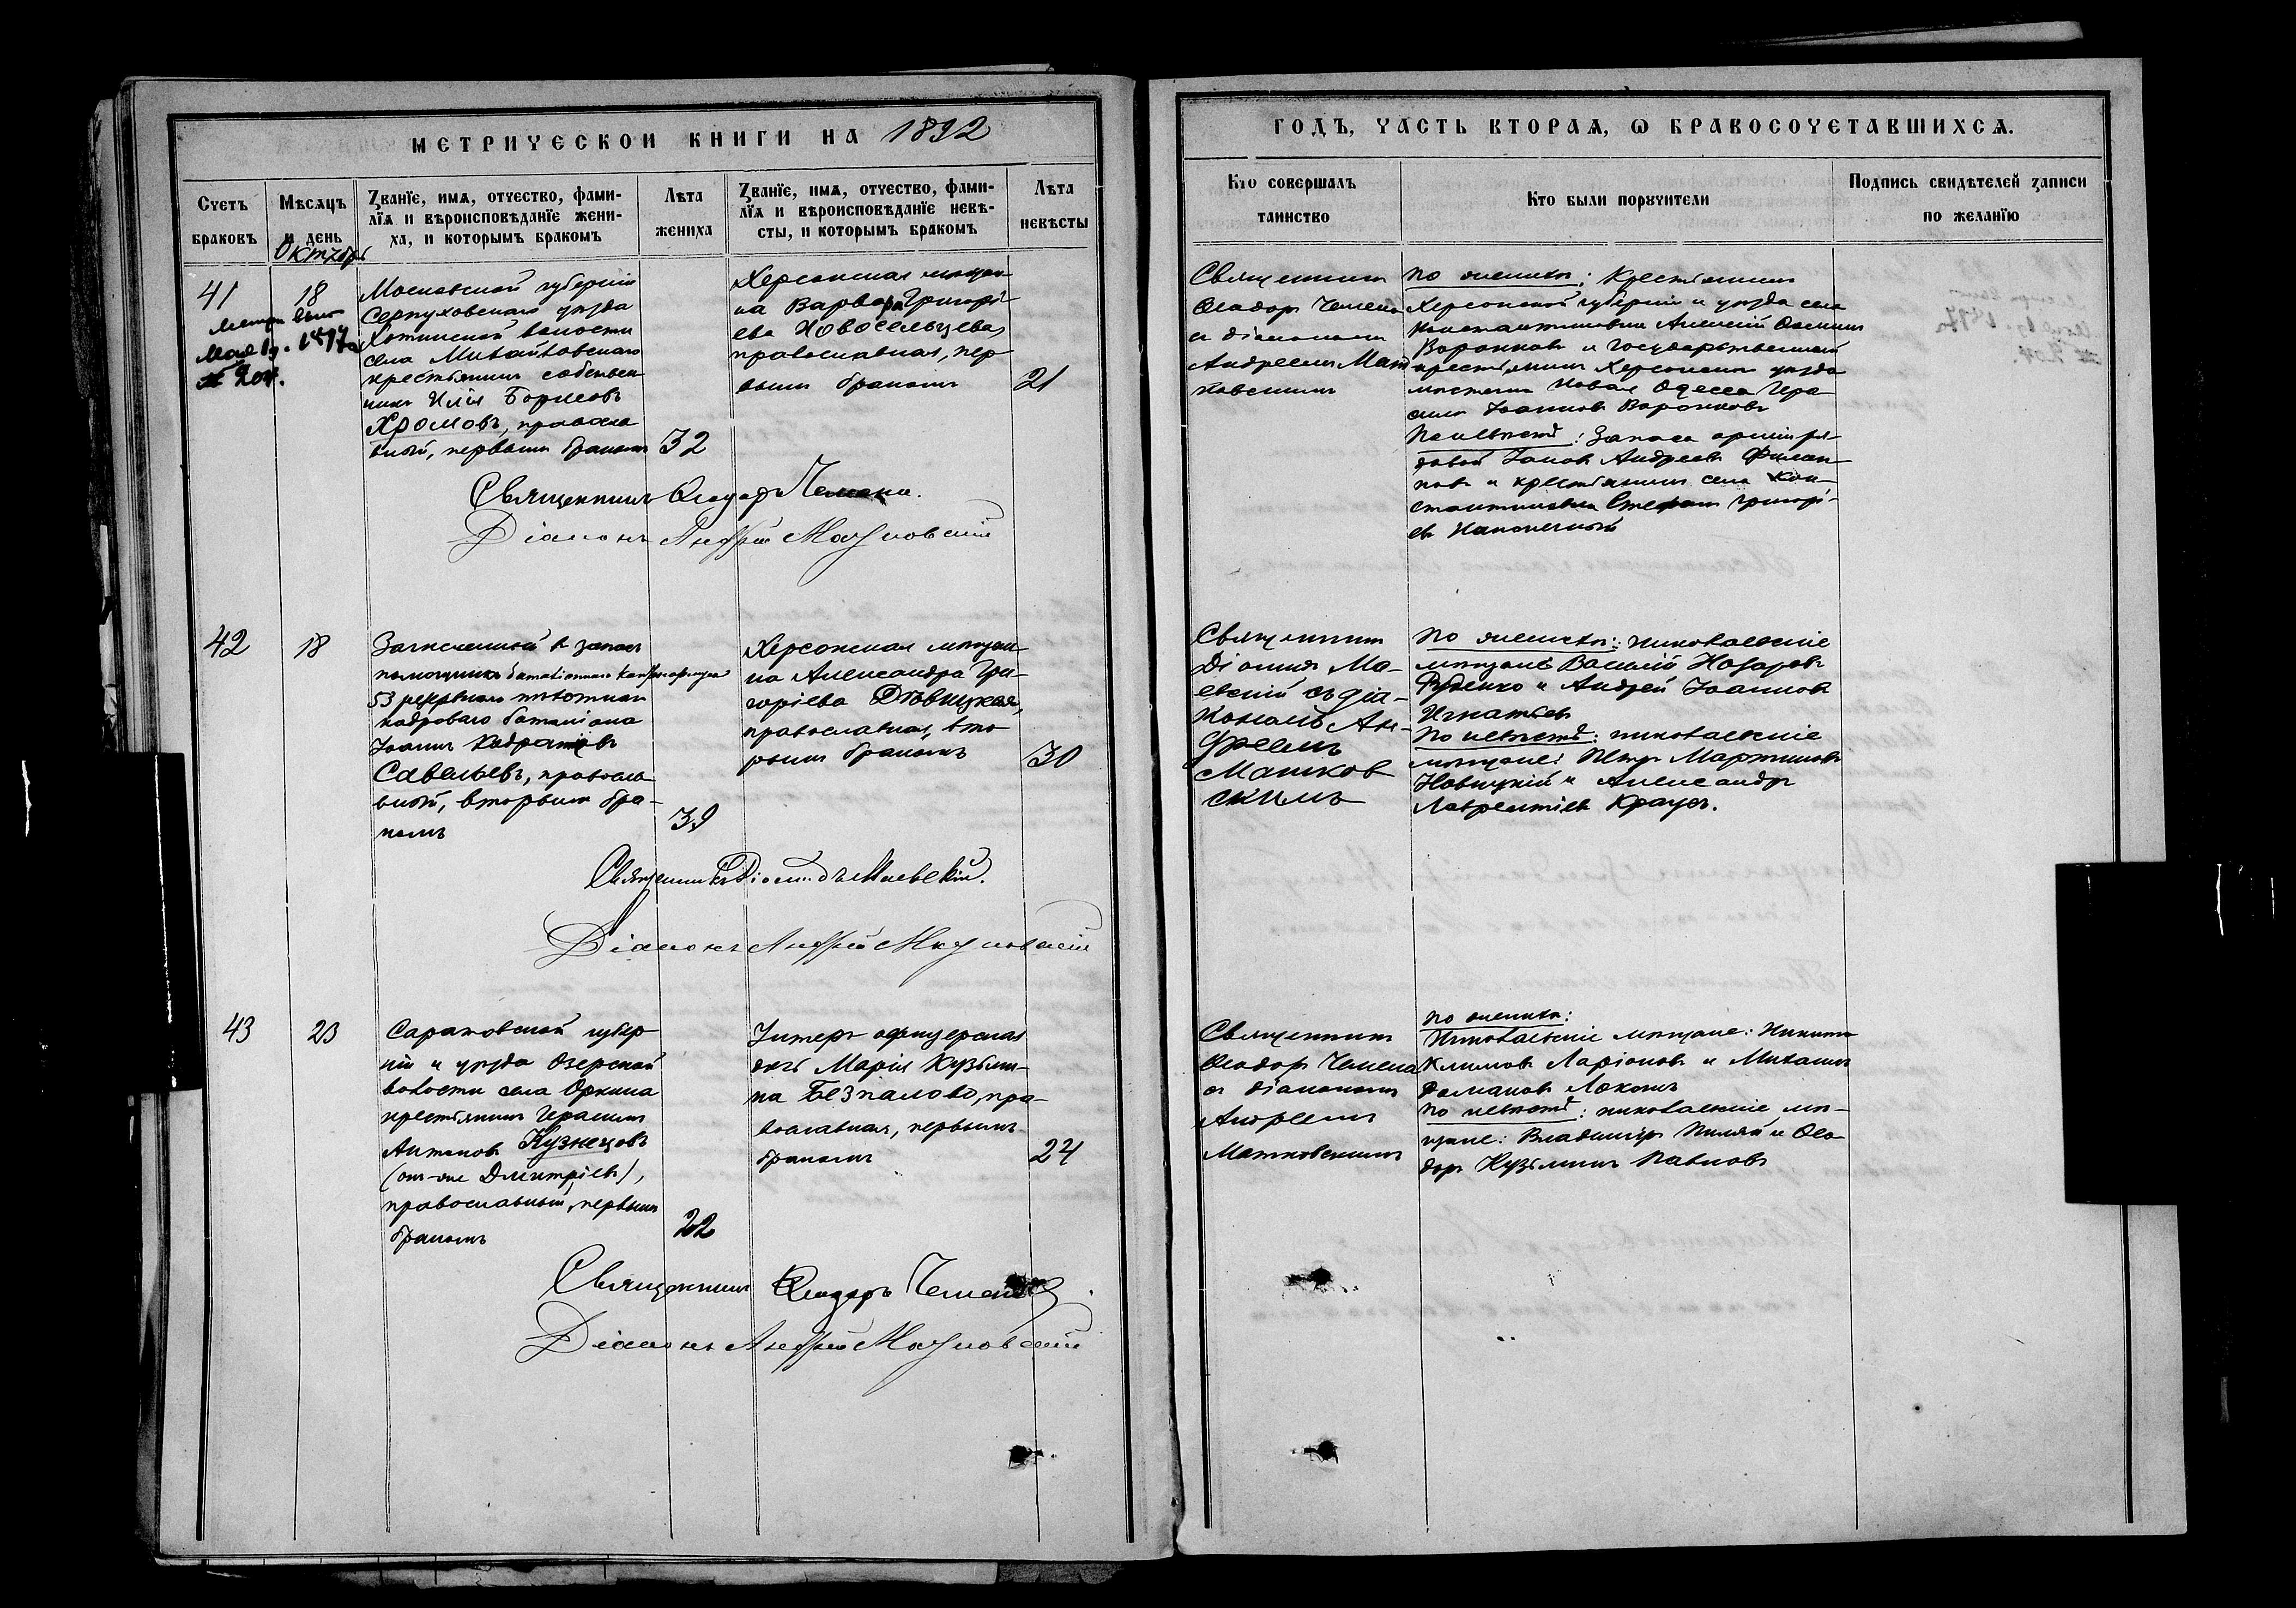 МЕТРИЧЕСКОЙ КНИГИ НА 1892
ГОДЪ, ЧАСТЬ ВТОРАѦ, Ѡ БРАКОСОЧЕТАВШИХСѦ.
Счетъ браковъ
Мѣсѧцъ и день
Званїе, имѧ, отчество, фами-
лїѧ и вѣроисповѣданїе жени-
ха, и которымъ бракомъ
Лѣта жениха
Званїе, имѧ, отчество, фами-
лїѧ и вѣроисповѣданїе невѣ-
сты, и которымъ бракомъ
Лѣта невѣсты
Кто совершалъ таинство
Кто были порꙋчители
Подпись свидѣтелей записи
по желанїю
Октябрь
41
18
Московской губерніи
Серпуховскаго уѣзда
волости
села
крестьянинъ собствен
никъ Илія Борисовъ
Хромовъ, правосла
вный, первымъ бракомъ
32
Херсонская мѣщан
ка Варвара Григорі
ева Новосельцева
православная, пер
вымъ бракомъ
21
Священникъ
Ѳеодоръ Чемена
съ діакономъ
Андреемъ Мат
ковскимъ
По женихѣ: Крестьянинъ
Херсонской губерніи и уѣзда села
Константиновки Алексій
Воронковъ и государственный
крестьянинъ Херсонскаго уѣзда
мѣстечка Новая Одесса Гера
симъ Іоанновъ Воронковъ
По невѣстѣ: Запаса арміи ря-
довой Іаковъ Андреевъ Филип
повъ и крестьянинъ села Кон-
стантиновки Стефанъ Григорі-
евъ
Священникъ Ѳеодоръ Чемена.
Діаконъ Андрей Матковскій
42
18
Зачисленный въ запасъ
помощникъ баталіоннаго
53 резервнаго пѣхотнаго
кадроваго баталіона
Іоаннъ Кодратовъ
Савельевъ, правосла
вный, вторымъ бра-
комъ
39
Херсонская мѣщан-
ка Александра Гри-
горіева
православная, вто
рымъ бракомъ
30
Священникъ
Діомидъ Ма-
евскій съ діа-
кономъ Ан-
дреемъ
Матков
скимъ
По женихѣ: николаевскіе
мѣщане Василій Назаровъ
Руденко и Андрей Іоанновъ
Игнатьевъ
По невѣстѣ: николаевскіе
мѣщане: Петръ Мартиновъ
Новицкій и Александръ
Лаврентіевъ Краусъ.
Священникъ Діомидъ Маевскій.
Діаконъ Андрей Матковскій
43
23
Саратовской губер
ніи и уѣзда Озерской
волости села Оркина
крестьянинъ Герасимъ
Антоновъ Кузнецовъ
(онъ-же Дмитріевъ),
православный, первымъ
бракомъ
22
Унтеръ офицерская
дочь Марія Кузьми-
на Безпалова, пра-
вославная, первымъ
бракомъ
24
Священникъ
Ѳеодоръ Чемена
съ діакономъ
Андреемъ
Матковскимъ
По женихѣ:
Николаевскіе мѣщане: Никита
Климовъ Ларіоновъ и Михаилъ
По невѣстѣ: николаевскіе мѣ-
щане: Владиміръ и Ѳео
доръ Кузьминъ Павловъ
Священникъ Ѳеодоръ Чемена
Діаконъ Андрей Матковскій